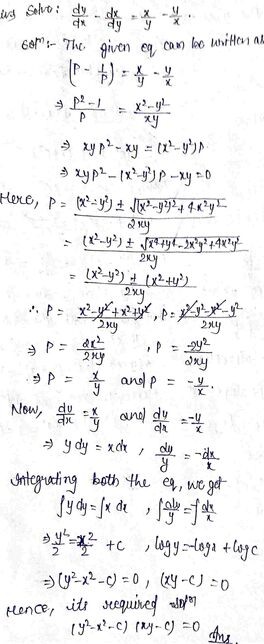 Solve: dy/dx - dx/dy = x/y - y/x.
Solⁿ:- The given eq can be written as
(P - 1/P) = x/y - y/x
⇒ P²-1/P = x²-y²/xy
⇒ xyp² - xy = (x²-y²)P
⇒ xyp² - (x²-y²)P - xy = 0
Here, P = (x²-y²) ± √(x²-y²)² + 4x²y² / 2xy
= (x²-y²) ± √x⁴+y⁴-2x²y²+4x²y² / 2xy
= (x²-y²) ± (x²+y²) / 2xy
∴ P = x²-y²+x²+y² / 2xy, P = x²-y²-x²-y² / 2xy
⇒ P = 2x²/2xy, P = -2y²/2xy
⇒ P = x/y and P = -y/x.
Now, dy/dx = x/y and dy/dx = -y/x
⇒ y dy = x dx, dy/y = -dx/x
Integrating both the eq, we get
∫y dy = ∫x dx, ∫dy/y = ∫dx/x
⇒ y²/2 = x²/2 + c, log y = -log x + log c
⇒ (y²-x²-c) = 0, (xy-c) = 0
Hence, its required solⁿ
(y²-x²-c) (xy-c) = 0 Ans.